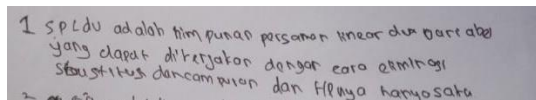 1 SPLDU adalah himpunan persamaan linear dua variabel
yang dapat dikerjakan dengan cara eliminasi
dan campuran dan HPnya hanya satu